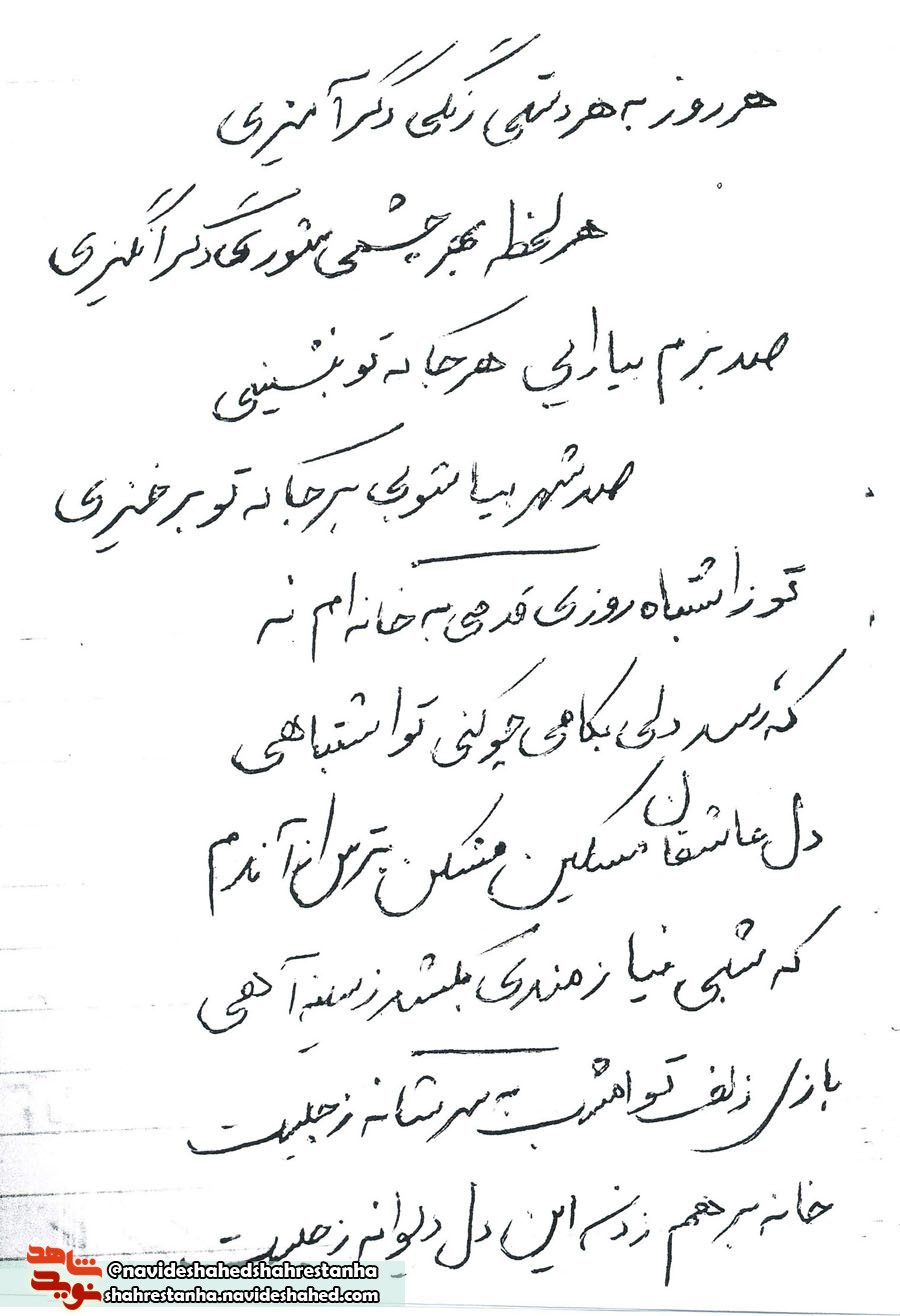 هر روز به هر دستی رنگی دگر آمیزی
هر لحظه بهر چشمی شوری دگر انگیزی
صد بزم بیارایی هر جا که تو بنشینی
صد شهر بیاشوبی هر جا که تو برخیزی
تو ز اشتباه روزی قدمی به خانه ام نه
که رسد دلی بکامی چو کنی تو اشتباهی
دل عاشقان مسکین مشکن بترس از آندم
که شبی نیازمندی بکشد ز سینه آهی
بازی زلف تو امشب به سر شانه ز چیست
خانه بر هم زدن این دل دیوانه ز چیست
شاهد نوید
@navideshahedshahrestanha
shahrestanha.navideshahed.com